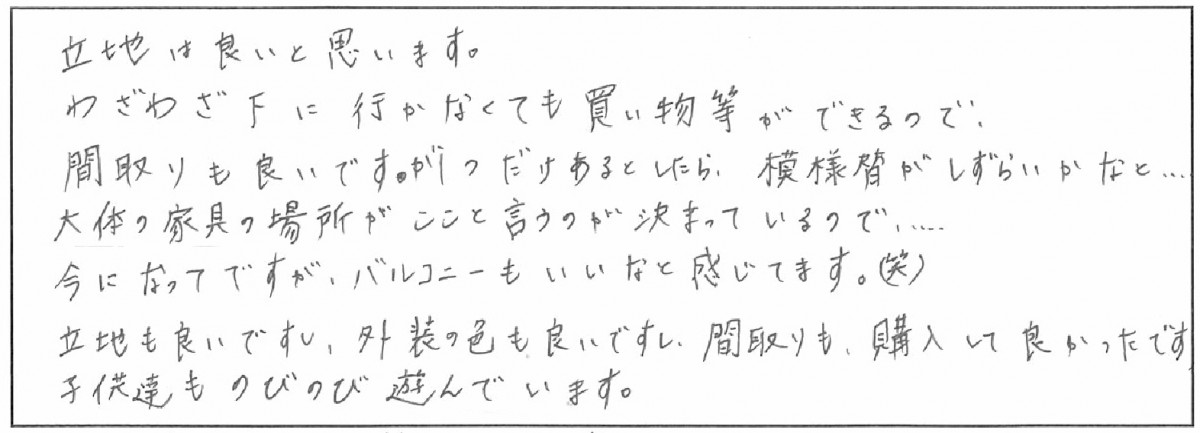 立地は良いと思います。
わざわざ下に行かなくても買い物等ができるので、
間取りも良いです。が1つだけあるとしたら、模様替がしずらいかなと....
大体の家具の場所がここと言うのが決まっているので、....
今になってですが、バルコニーもいいなと感じてます。(笑)
立地も良いですし、外装の色も良いですし、間取りも、購入して良かったです
子供達ものびのび遊んでいます。